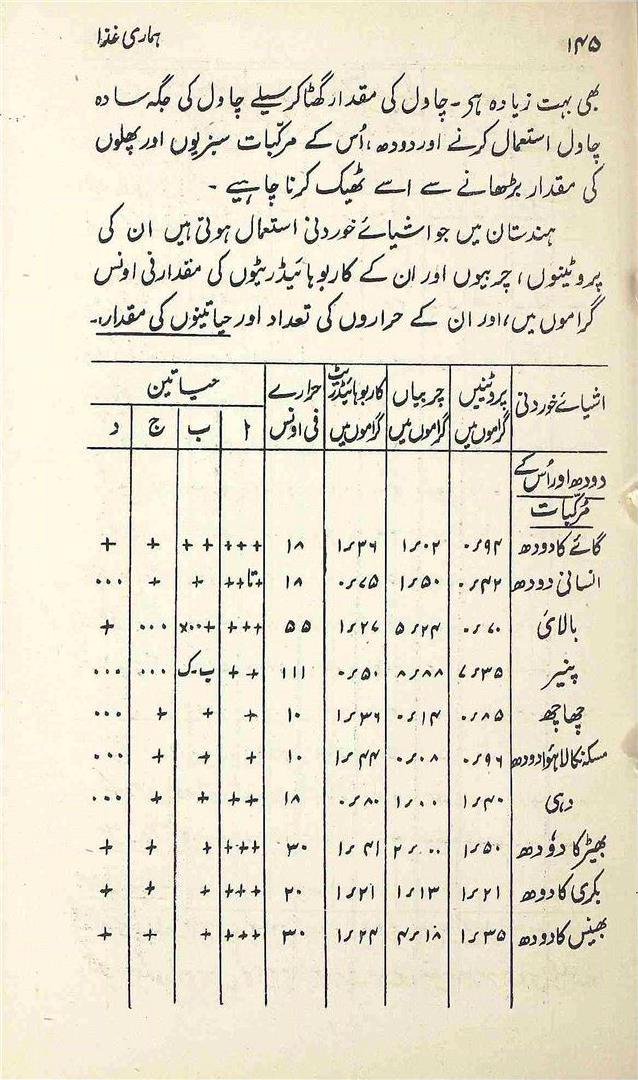 ہماری غذا ۱۴۵
بھی بہت زیادہ ہے۔ چاول کی مقدار گھٹا کر سیلے چاول کی جگہ سادہ
چاول استعمال کرنے اور دودھ، اُس کے مرکّبات سبزیوں اور پھلوں
کی مقدار بڑھانے سے اسے ٹھیک کرنا چاہیے۔
ہندستان میں جو اشیائے خوردنی استعمال ہوتی ہیں ان کی
پروٹینوں، چربیوں اور ان کے کاربوہائیڈریٹوں کی مقدار فی اونس
گراموں میں، اور ان کے حراروں کی تعداد اور حیاتینوں کی مقدار۔
اشیائے خوردنی | پروٹینیں گراموں میں | چربیاں گراموں میں | کاربوہائیڈریٹ گراموں میں | حرارے فی اونس | حیاتین
ا | ب | ج | د
دودھ اور اُس کے
مُرکّبات
گائے کا دودھ | ۰٫۹۴ | ۱٫۰۲ | ۱٫۳۶ | ۱۸ | +++ | ++ | + | +
انسانی دودھ | ۰٫۴۲ | ۱٫۵۰ | ۰٫۷۵ | ۱۸ | +تا++ | + | + | ...
بالائی | ۰٫۷۰ | ۵٫۲۴ | ۱٫۲۷ | ۵۵ | +++ | | ... | +
پنیر | ۷٫۳۵ | ۸٫۸۸ | ۰٫۵۰ | ۱۱۱ | ++ | پ۔ک | ... | ...
چھاچھ | ۰٫۸۵ | ۰٫۱۴ | ۱٫۳۶ | ۱۰ | + | + | + | ...
مسکہ نکالا ہوا دودھ | ۰٫۹۶ | ۰٫۰۸ | ۱٫۴۴ | ۱۰ | + | + | + | ...
دہی | ۱٫۴۰ | ۱٫۰۰ | ۰٫۸۰ | ۱۸ | ++ | + | + | ...
بھیڑ کا دودھ | ۱٫۵۰ | ۲٫۰۰ | ۱٫۴۱ | ۳۰ | +++ | + | + | +
بکری کا دودھ | ۱٫۲۱ | ۱٫۱۳ | ۱٫۲۱ | ۲۰ | +++ | + | + | +
بھینس کا دودھ | ۱٫۳۵ | ۴٫۱۸ | ۱٫۲۴ | ۳۰ | +++ | + | + | +